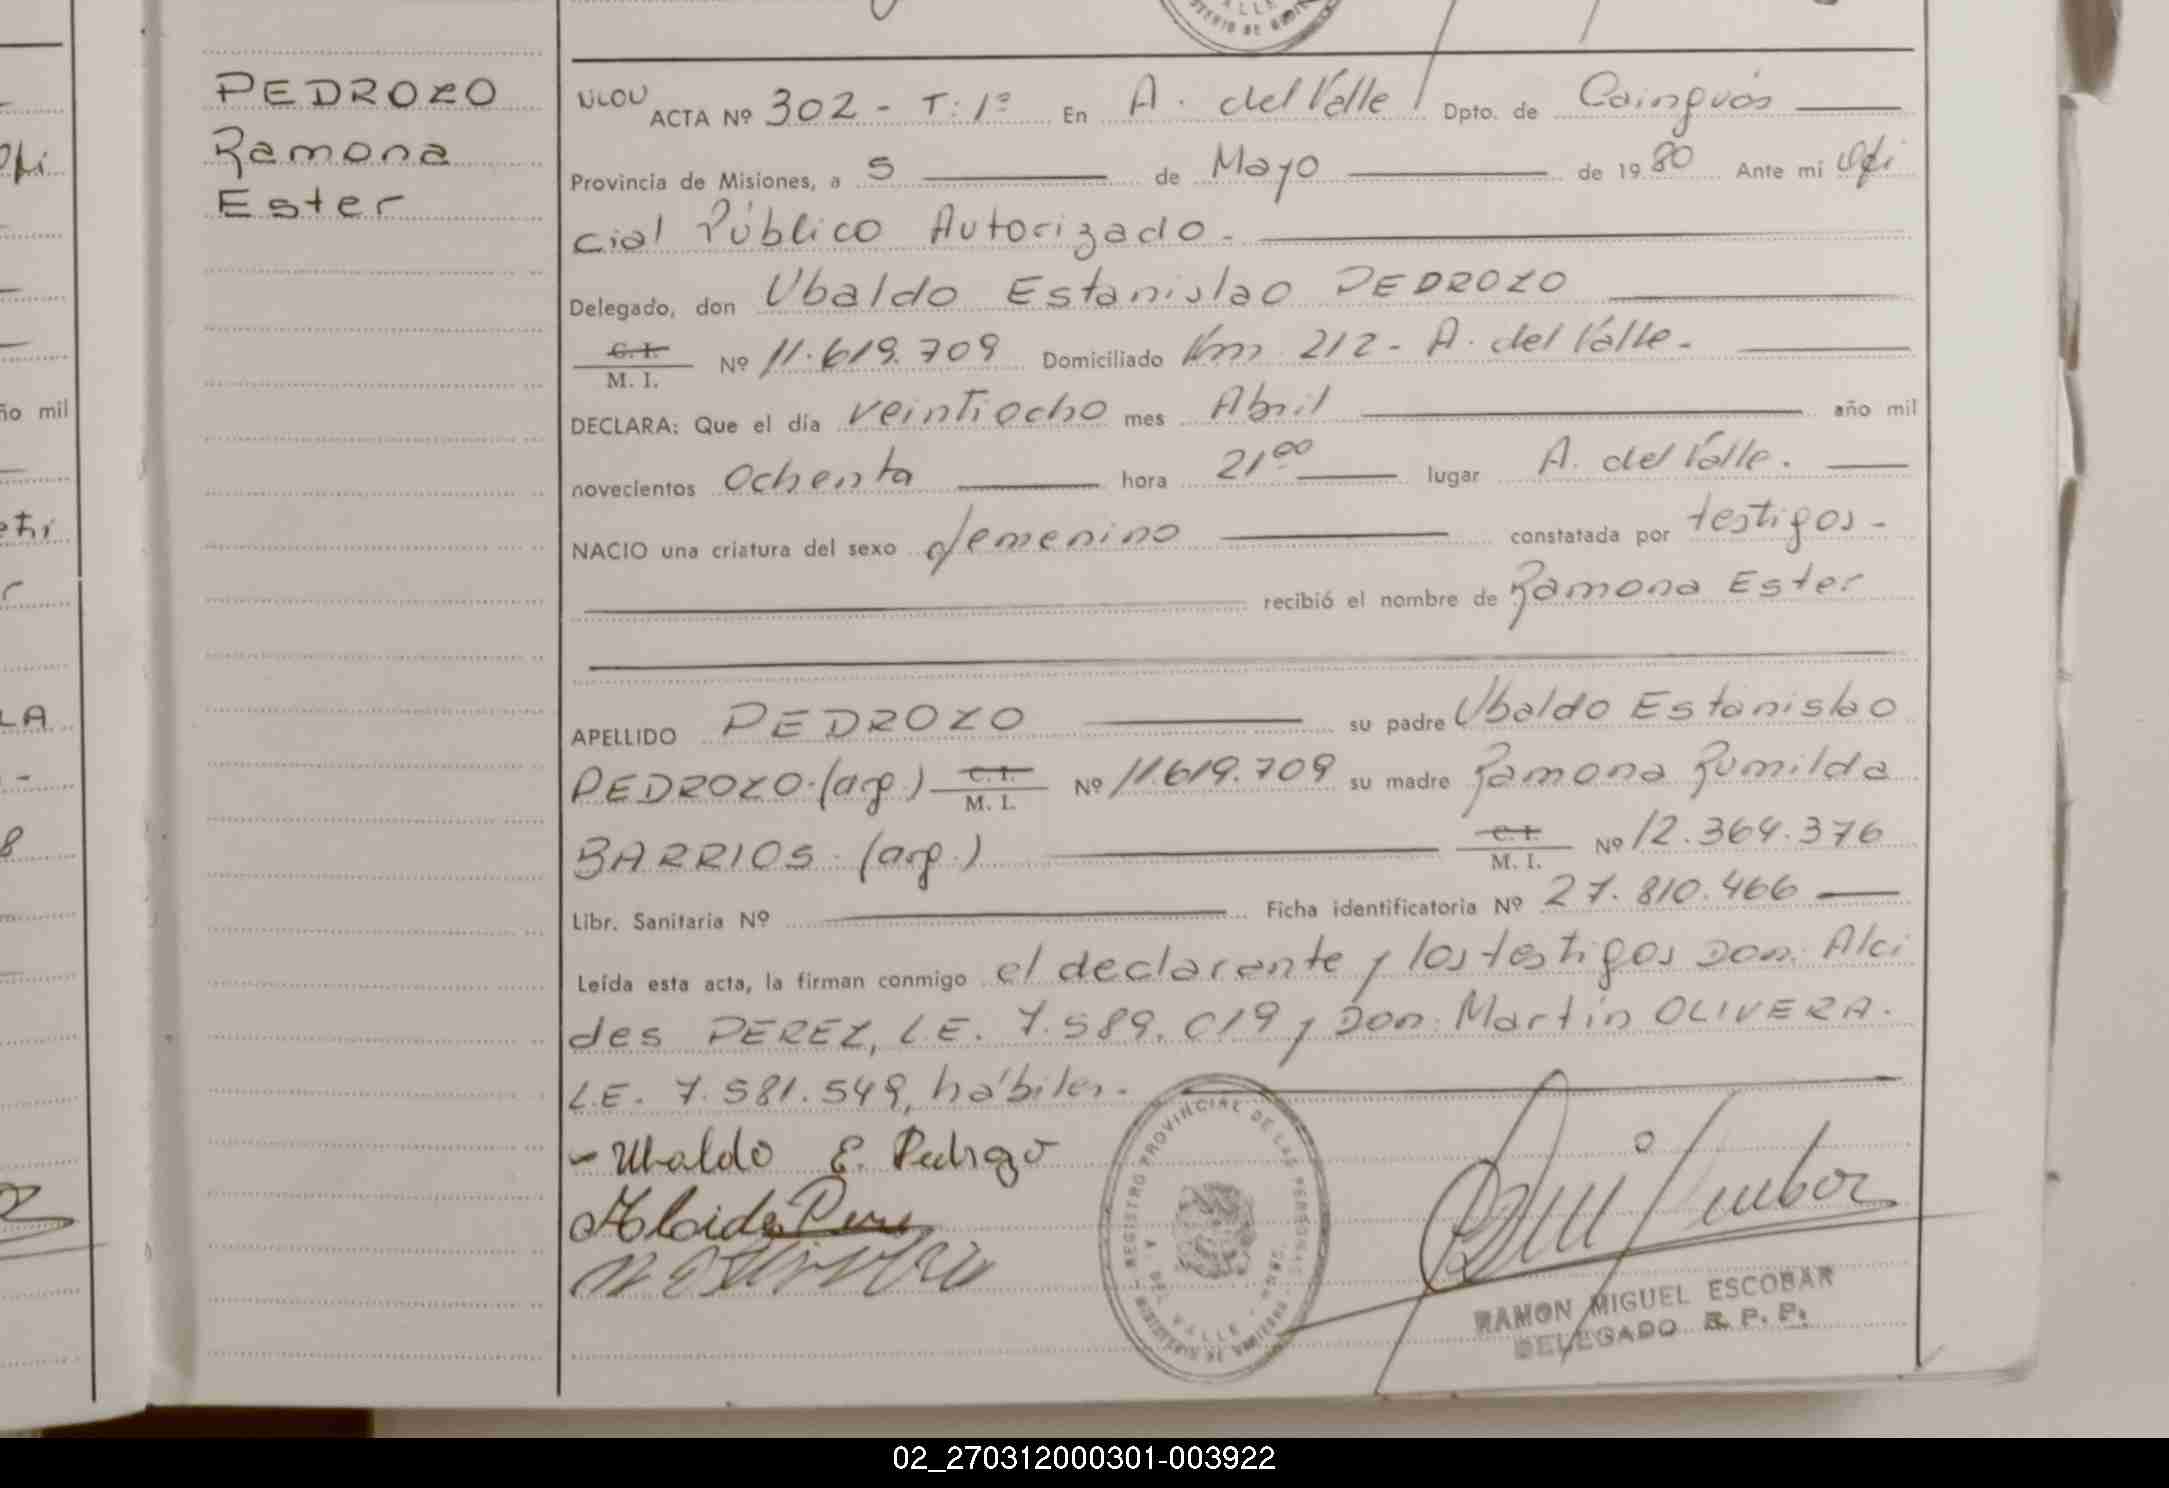 PEDROZO
Ramona
Ester
ACTA Nº 302 - T: 1º En A. del Valle Dpto. de Cainguás
Provincia de Misiones, a 5 de Mayo de 1980 Ante mí Ofi
cial Público Autorizado -
Delegado, don Ubaldo Estanislao PEDROZO
C. I.
M. I. Nº 11.619.709 Domiciliado Km 212 - A. del Valle -
DECLARA: Que el día veintiocho mes Abril año mil
novecientos ochenta hora 21⁰⁰ lugar A. del Valle.
NACIO una criatura del sexo femenino constatada por testigos -
recibió el nombre de Ramona Ester
APELLIDO PEDROZO su padre Ubaldo Estanislao
PEDROZO. (arg.) C. I. M. I. Nº 11.619.709 su madre Ramona Rumilda
BARRIOS (arg.) C. I. M. I. Nº 12.364.376
Libr. Sanitaria Nº Ficha identificatoria Nº 27.810.466
Leída esta acta, la firman conmigo el declarante y los testigos Don. Alci
des PEREZ, L.E. 7.589.019 y Don. Martín OLIVERA.
L.E. 7.581.549, hábiles.
- Ubaldo E. Pedrozo
REGISTRO PROVINCIAL DE LAS PERSONAS
A. DEL VALLE
MINISTERIO DE GOBIERNO
RAMON MIGUEL ESCOBAR
DELEGADO R. P. P.
02_270312000301-003922
ño mil
LA
8